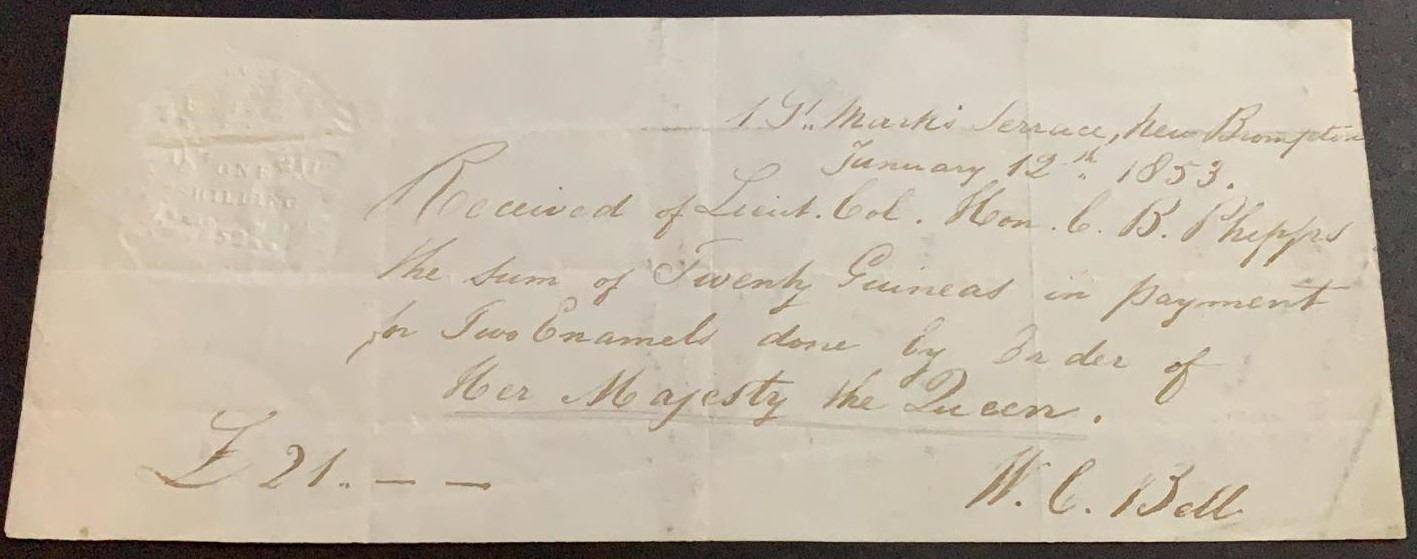 ONE
SHILLING
1 St. Mark's Terrace, New Brompton
January 12th. 1853.
Received of Lieut. Col. Hon. C. B. Phipps
the sum of Twenty Guineas in payment
for Two Enamels done by Order of
Her Majesty the Queen.
£ 21. — —
W. C. Bell